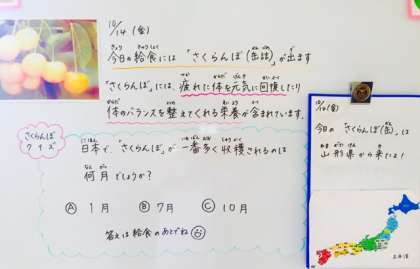 10/14 (金)
今日の給食には「さくらんぼ(缶詰)」が出ます
「さくらんぼ」には、疲れた体を元気に回復したり
体のバランスを整えてくれる栄養が含まれています。
さくらんぼ
クイズ
日本で、「さくらんぼ」が一番多く収穫されるのは
何月でしょうか?
Ⓐ 1月 Ⓑ 7月 Ⓒ 10月
答えは給食のあとでね
10/14(金)
今日の「さくらんぼ(缶)」は
山形県から来たよ!